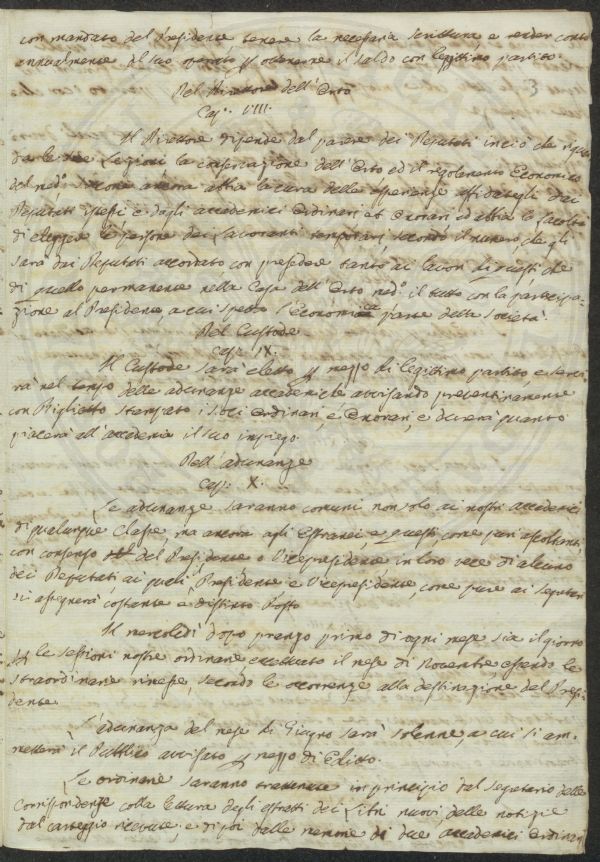 con mandato del Presidente tenere la necessaria scrittura, e render conto
annualmente del suo operato, p ottenerne il saldo con legittimo partito.
3
Del Direttore dell' Orto
Cap.º VIII.
Il Direttore dipende dal parere dei Deputati in ciò che rigu-
da le Lezioni la conservazione dell' Orto ed il regolamento Economico
del med.º, siccome ancora abbia la cura delle esperienze affidategli dai
Deputati istessi e dagli accademici Ordinari ed Onorari, ed abbia la facoltà
di eleggere le persone dei Lavoranti temporarj secondo il numero che gli
sarà dai Deputati accordato con presedere tanto ai lavori di questi che
di quello permanente nella Casa dell' Orto med.º il tutto con la partecipa-
zione al Presidente, a cui spetta l'Economica parte della Società.
Del Custode
Cap.º IX.
Il Custode sarà eletto p mezzo di legittimo partito, e servi
rà nel tempo delle adunanze accademiche avvisando preventivamente
con Biglietto stampato i soci Ordinari, e Onorari, e durerà quanto
piacerà all' accademia il suo impiego.
Dell' adunanze
Cap.º X.
Le adunanze saranno comuni non solo ai nostri accademici
di qualunque Classe, ma ancora agli Estranei, e questi, come puri ascoltanti,
con consenso del Presidente o Vicepresidente in loro vece di alcuno
dei Deputati, ai quali, Presidente e Vicepresidente, come pure ai Segretari
si assegnerà costante e distinto Posto.
Il mercoledì dopo pranzo primo di ogni mese sia il giorno
p le sessioni nostre ordinarie eccettuato il mese di Novembre, essendo le
straordinarie rimesse, secondo le occorrenze alla destinazione del Presi-
dente.
L'adunanza del mese di Giugno sarà solenne, a cui si am-
metterà il Pubblico avvisato p mezzo di Editto.
Le ordinarie saranno trattenute in principio dal Segretario delle
Corrispondenze colla lettura degli estratti dei Libri nuovi delle notizie
dal carteggio ricevute, e di poi dalle memorie di due accademici Ordinari